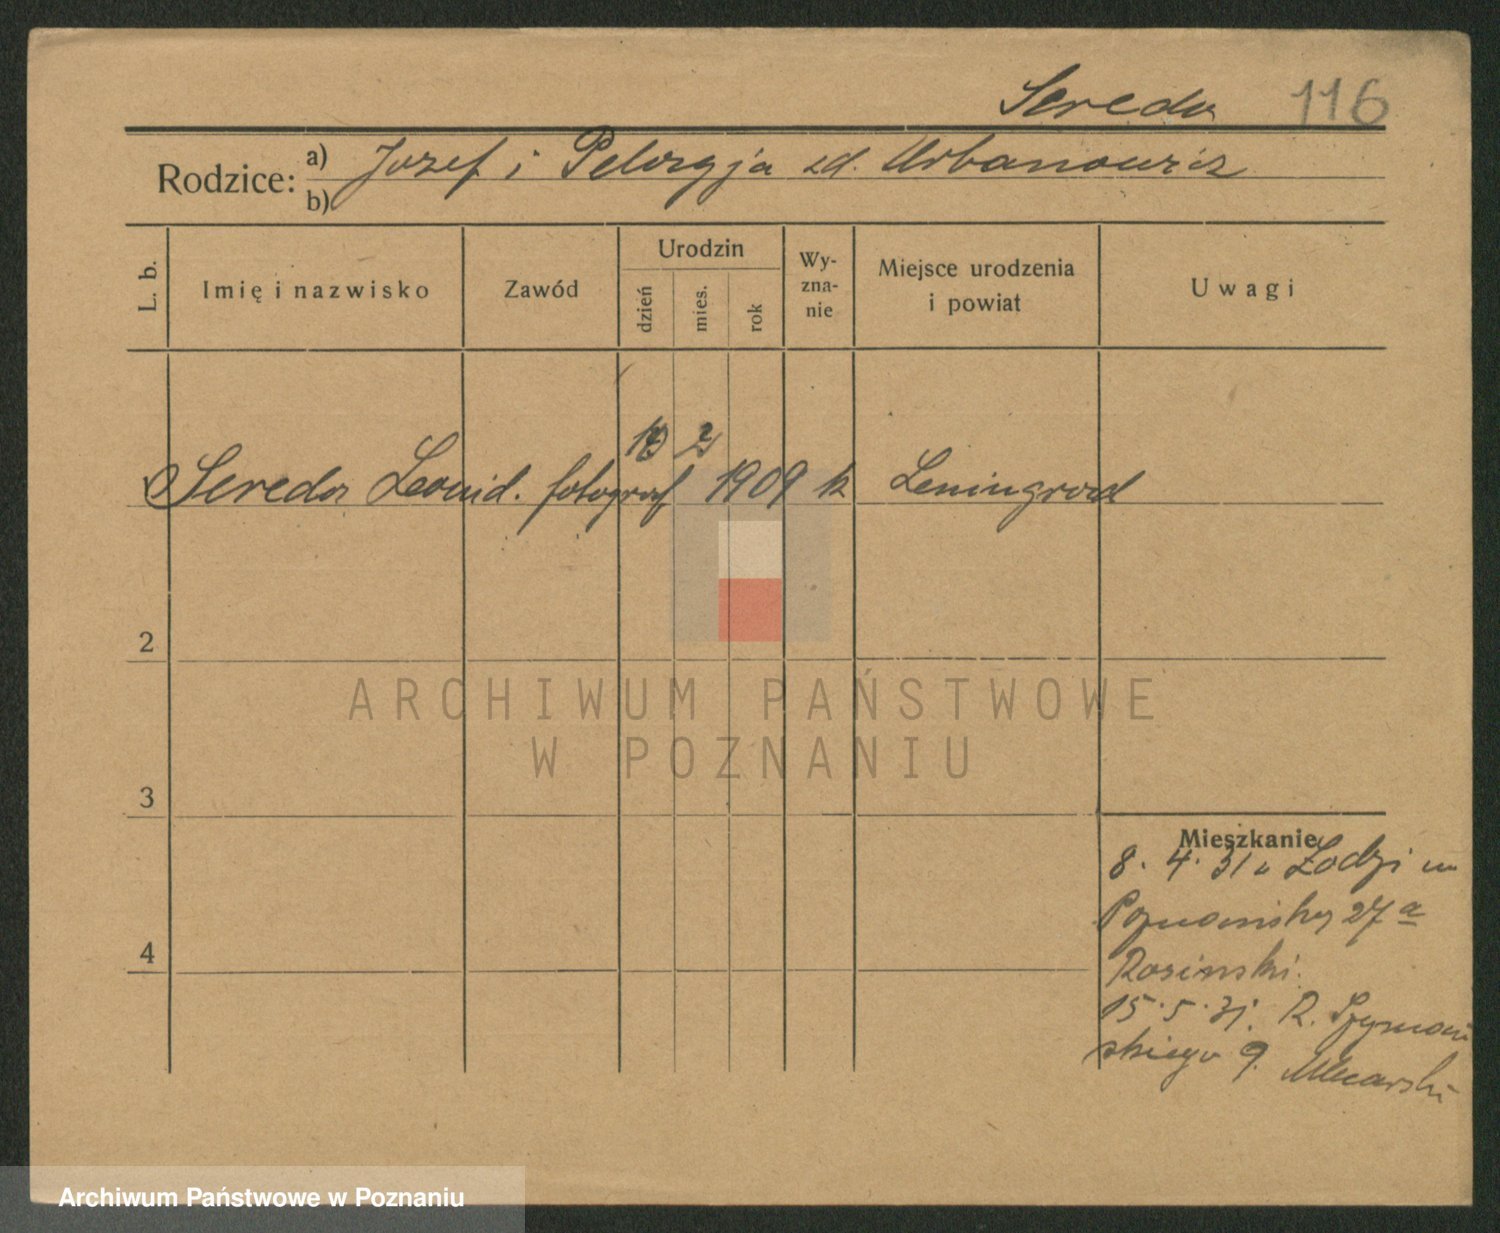 Sereda 116
Rodzice: a) Jozef i Pelagja zd. Urbanowicz
b)
L. b. Imię i nazwisko Zawód Urodzin dzień mies. rok Wy-zna-nie Miejsce urodzenia i powiat Uwagi
2
Sereda Leonid. fotograf 1909 k Leningrad
2
3
4
Mieszkanie
8. 4. 31 z Łodzi
Poznańska 27 a
Rosinski.
15. 5. 31. R. Szymań
skiego 9. Mlecarski
ARCHIWUM PAŃSTWOWE
W POZNANIU
Archiwum Państwowe w Poznaniu